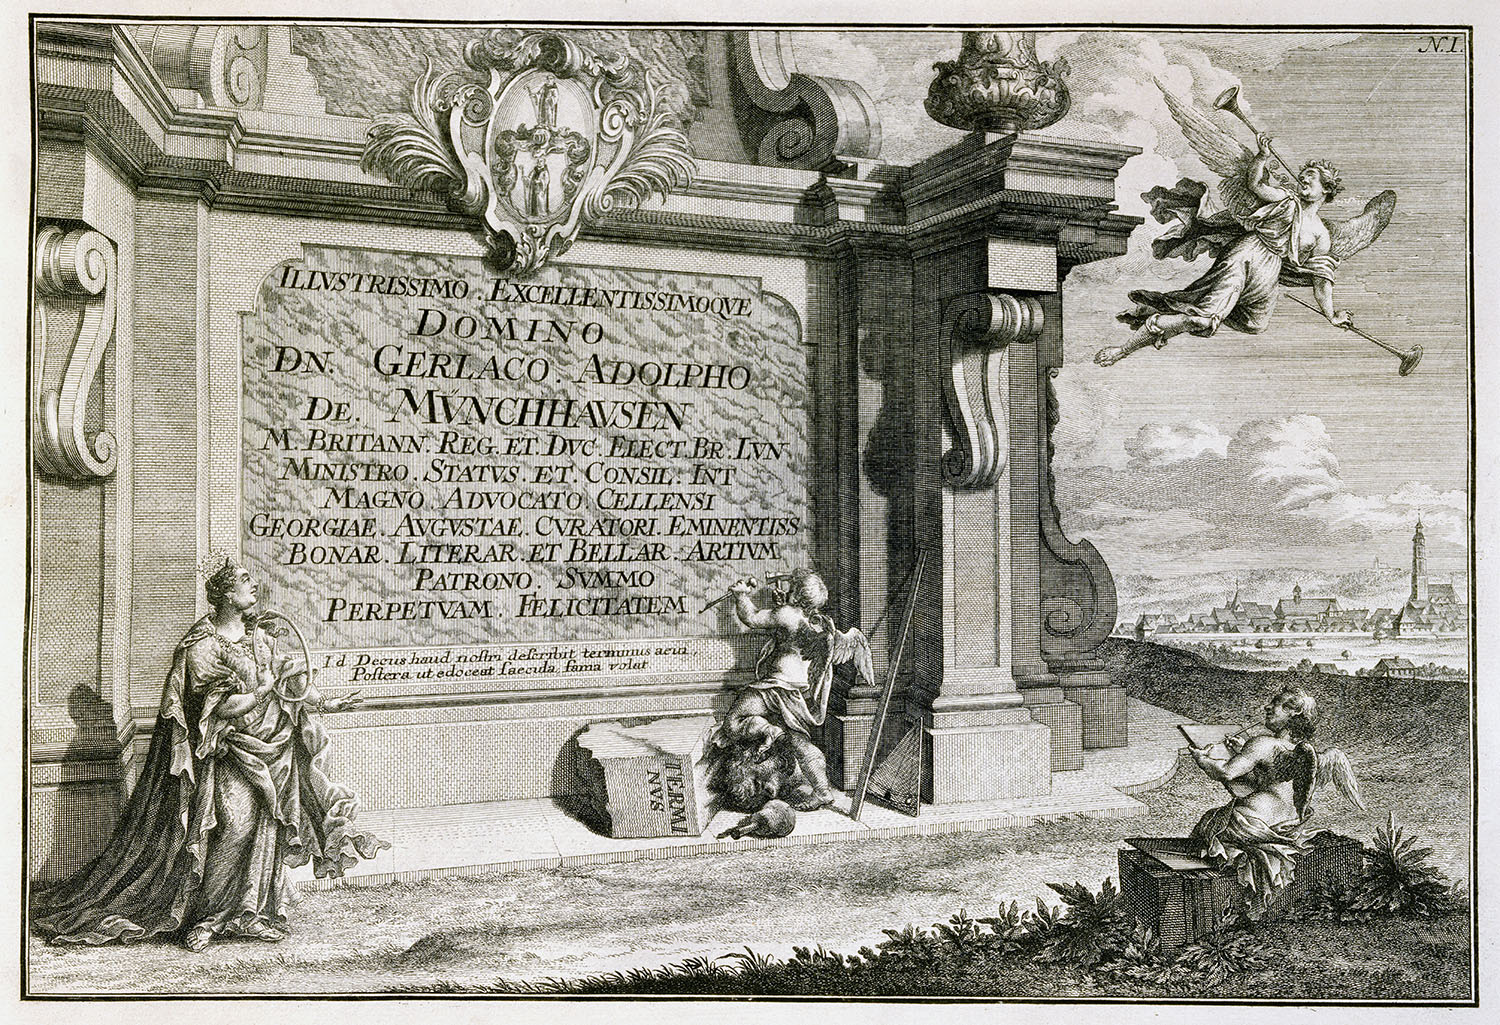 N. I.
ILLVSTRISSIMO . EXCELLENTISSIMOQVE
DOMINO
DN. GERLACO . ADOLPHO
DE. MVNCHHAVSEN
M. BRITANN. REG. ET. DVC. ELECT. BR. LVN.
MINISTRO . STATVS . ET . CONSIL. INT
MAGNO ADVOCATO CELLENSI
GEORGIAE . AVGVSTAE . CVRATORI . EMINENTISS
BONAR. LITERAR. ET BELLAR. ARTIVM
PATRONO . SVMMO
PERPETVAM. FELICITATEM
Id Decus haud nostri describit terminus aevi,
Postera ut edoceat saecula fama volat
TERMI
NVS